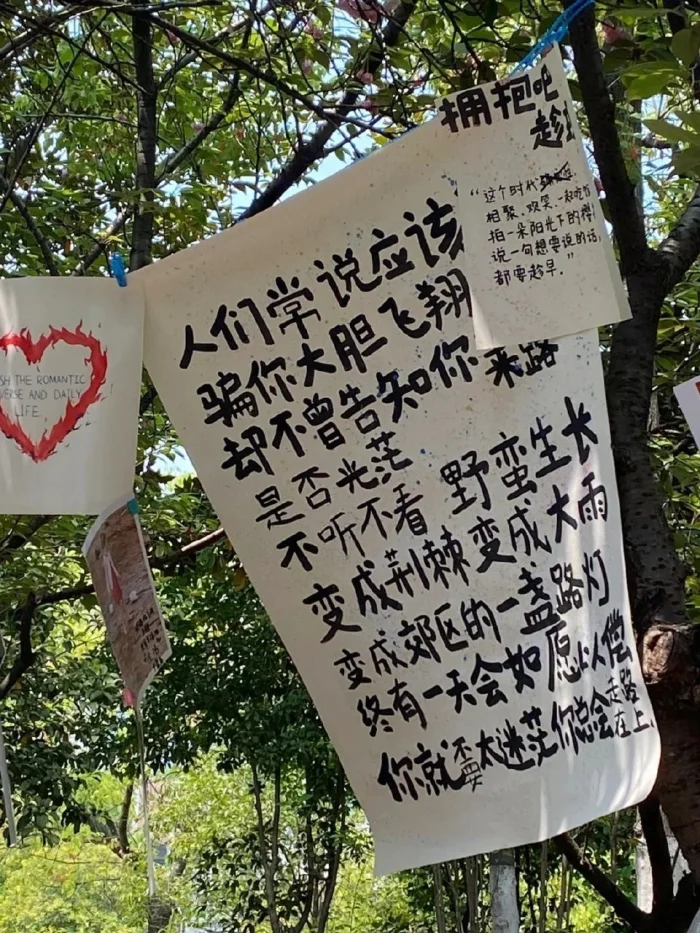 拥抱吧
趁
“这个时代
相聚、欢笑、一起吃饭
拍一朵阳光下的樱
说一句想要说的话,
都要趁早。”
人们常说应该
骗你大胆飞翔
却不曾告知你 来路
是否光茫
不听不看 野蛮生长
变成荆棘变成大雨
变成郊区的一盏路灯
终有一天会如愿以偿
你就不要太迷茫你总会走路
在上.
SH THE ROMANTIC
VERSE AND DAILY
LIFE